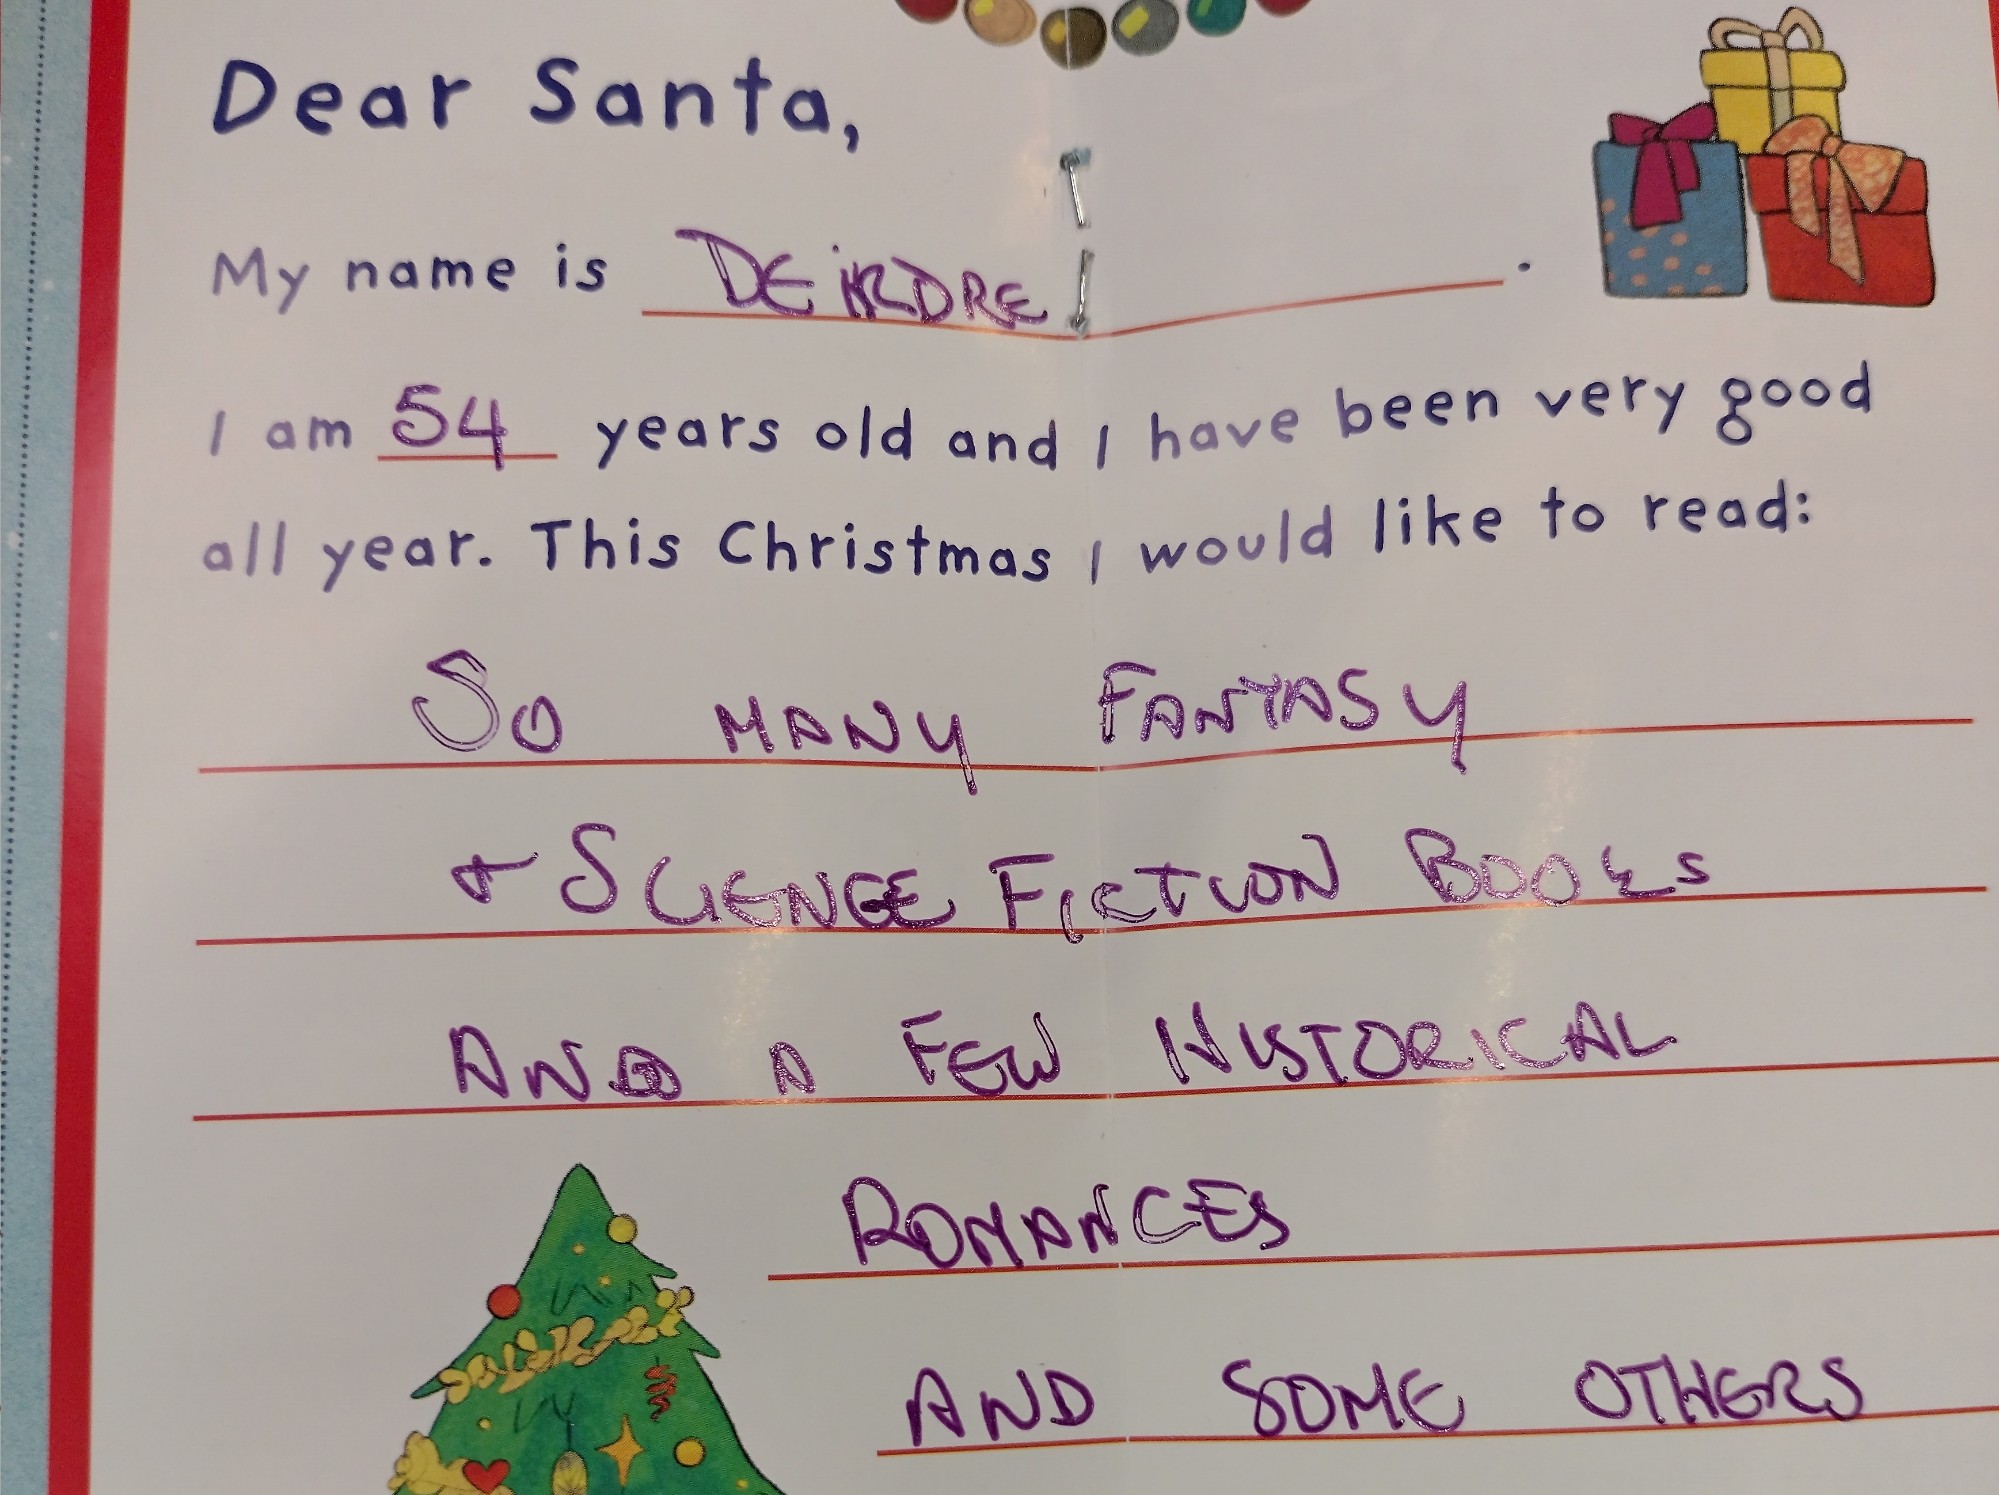 Dear Santa,
My name is DEIRDRE .
I am 54 years old and I have been very good
all year. This Christmas I would like to read:
SO MANY FANTASY
+ SCIENCE FICTION BOOKS
AND A FEW HISTORICAL
ROMANCES
AND SOME OTHERS